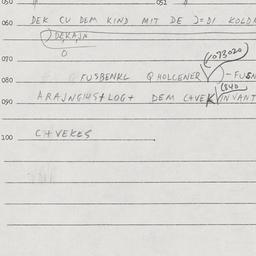 050 052
060 DEK CU DEM KIND MIT DE J=DI KOLD
DEKAJN
O
070 (1073020)
080 FUSBENKL Q HOLCENER -FUSN
(340
090 ARAJNGIUS+LOG+ DEM C+VEK INVANT
100 C+VEKES